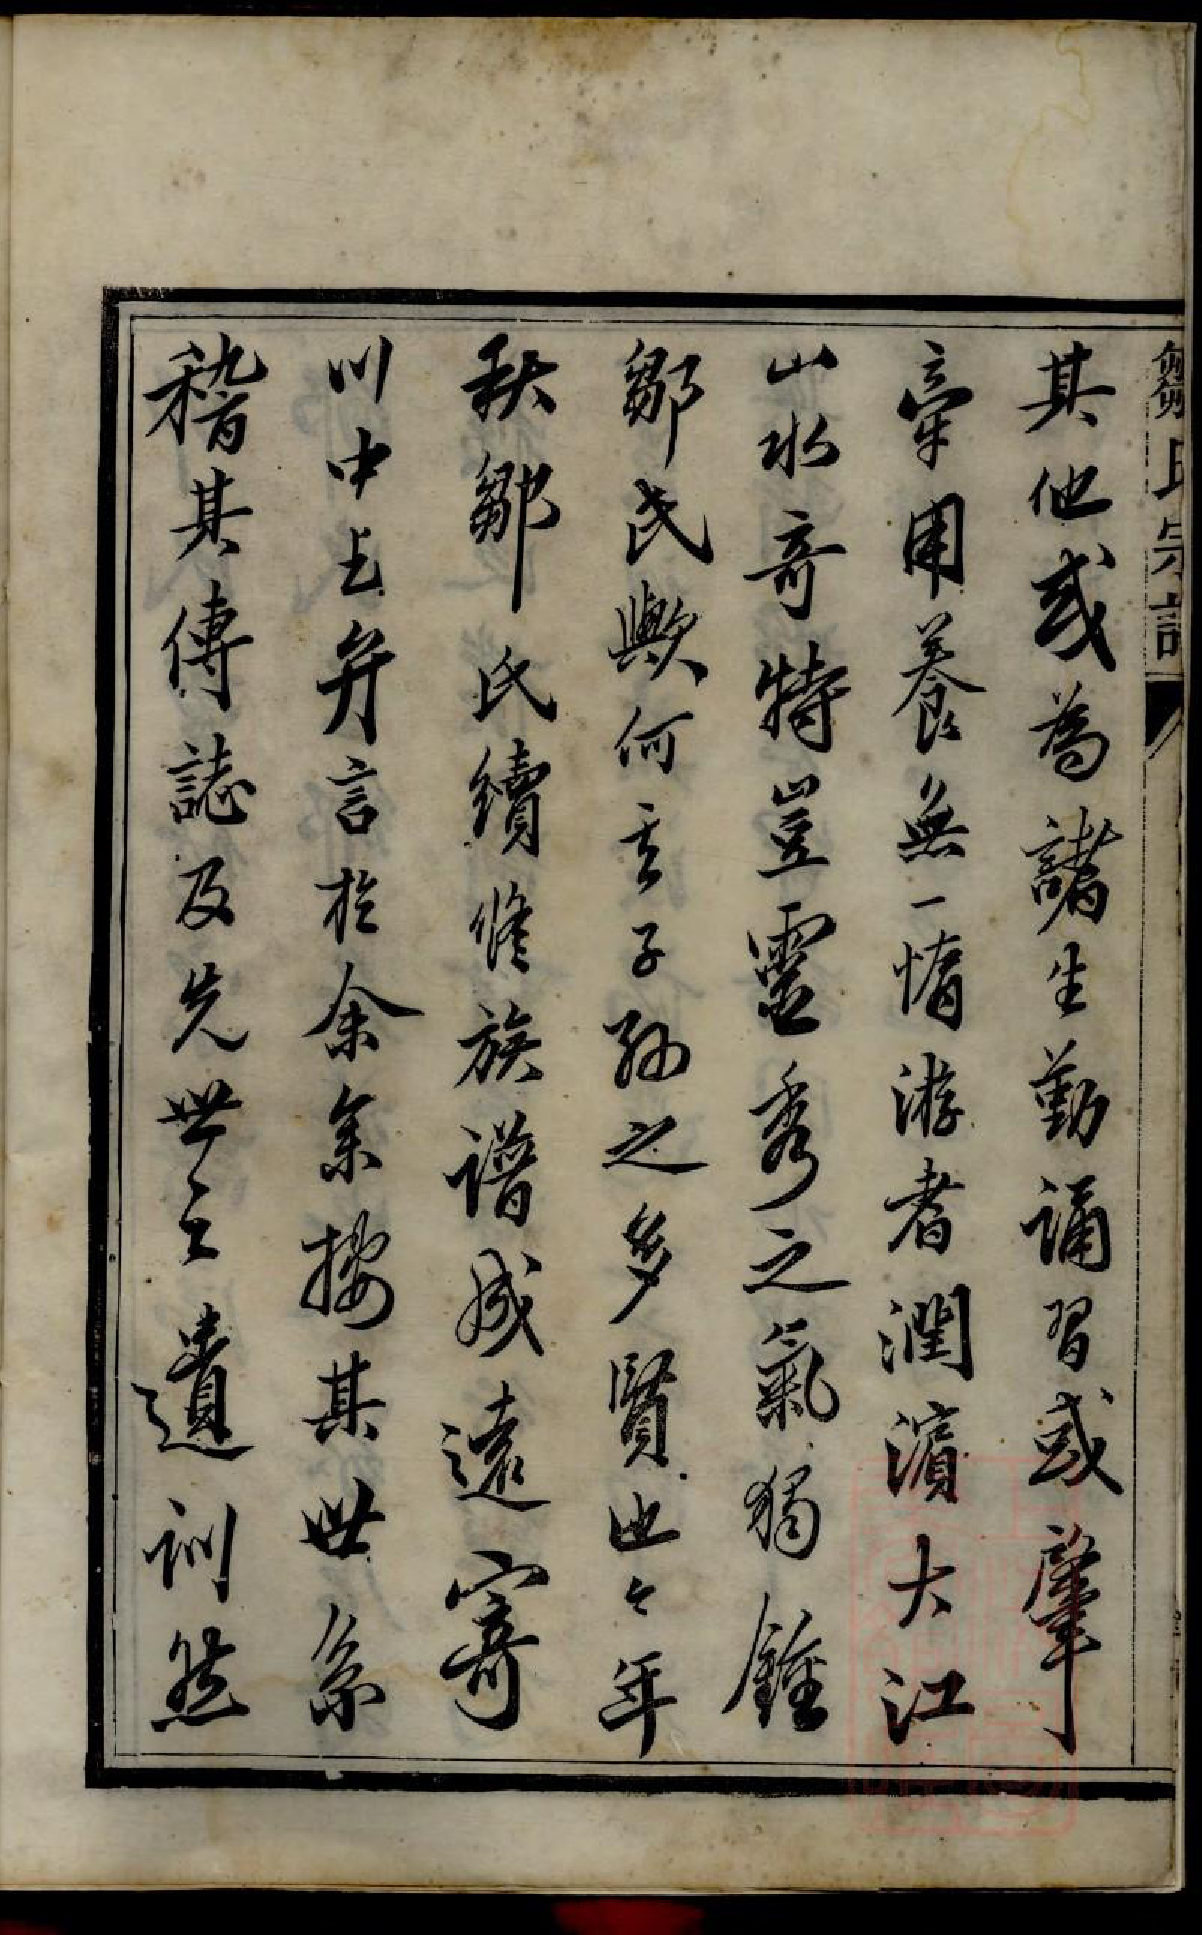 鄒氏宗譜
其他或為諸生勤誦習或肇
牽用養無一惰游者潤濱大江
山水奇特豈靈秀之氣獨鍾
鄒氏歟何其子孫之多賢也今年
秋鄒氏續修族譜成遠寄
川中乞弁言於余余按其世系
稽其傳誌及先世之遺訓然